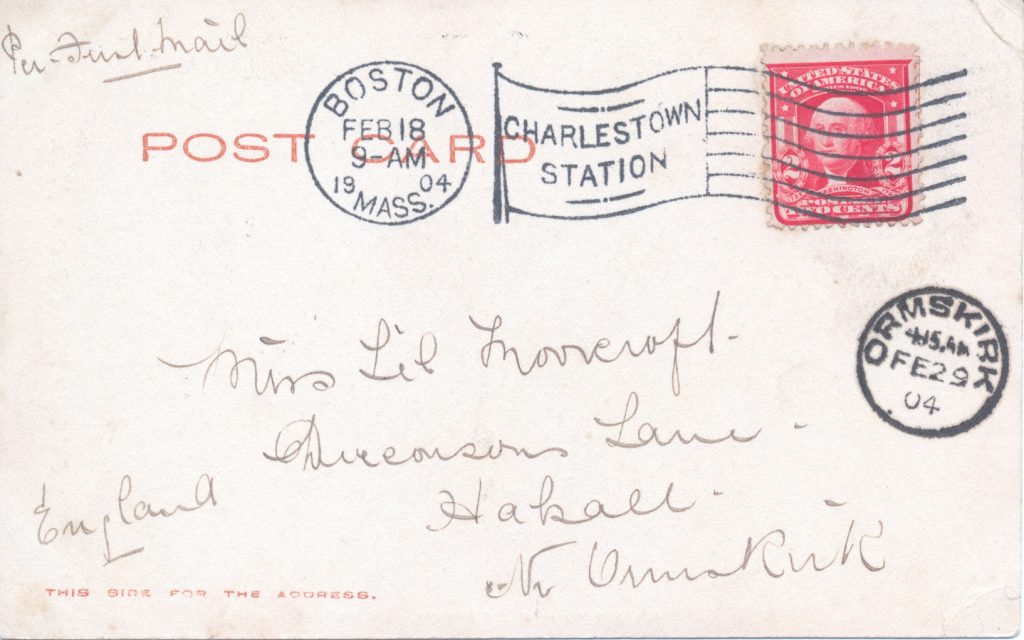 Per First Mail
POST CARD
BOSTON
FEB 18
9-AM
1904
MASS.
CHARLESTOWN
STATION
UNITED STATES
OF AMERICA
2 2
WASHINGTON
POSTAGE
TWO CENTS
ORMSKIRK
4.15.AM
FE 29
04
Miss Lil Moorcroft.
Lane
England
Nr Ormskirk
THIS SIDE FOR THE ADDRESS.